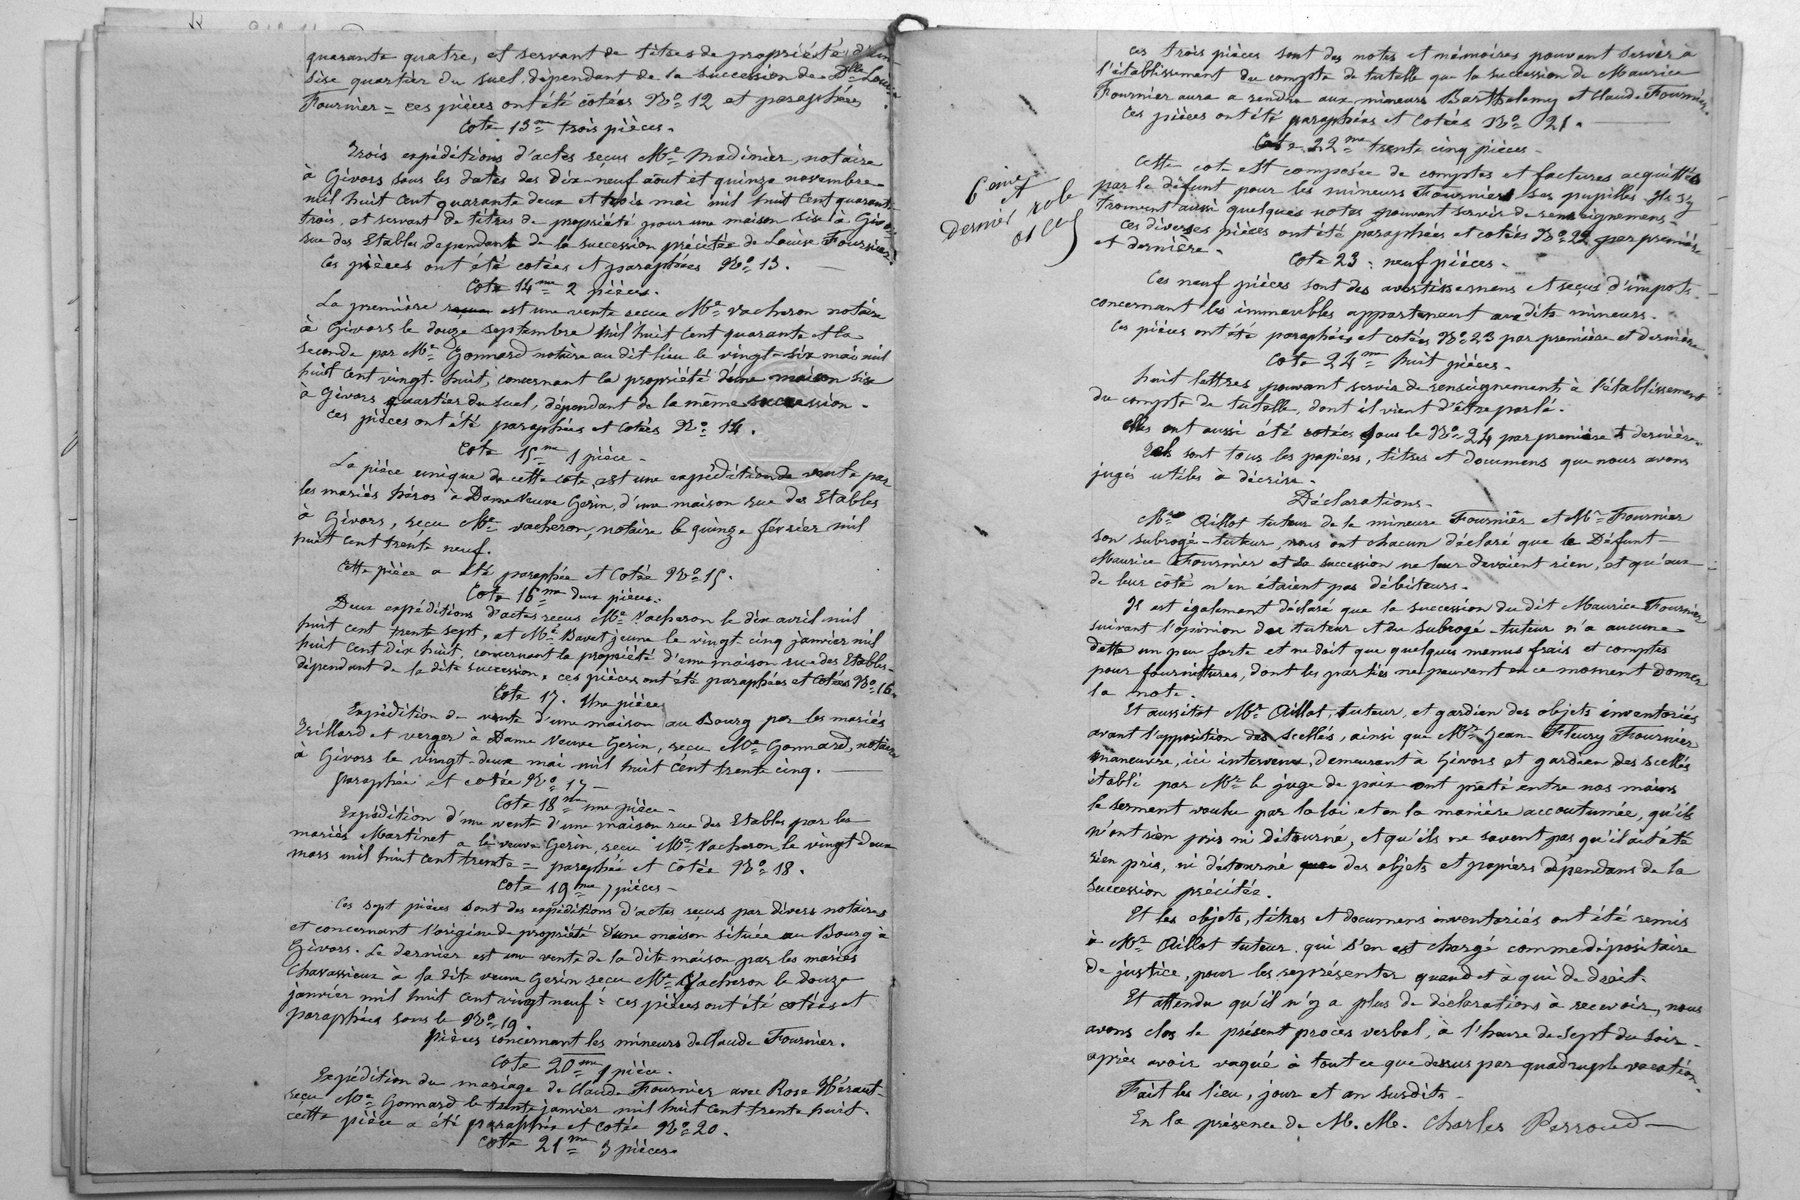 quarante quatre, et servant de titres de propriété d'un
sise quartier du suel, dépendant de la succession de Dlle Louise
Fournier = ces pièces ont été cotées No 12 et paraphées
Cote 13me trois pièces.
Trois expéditions d'actes reçus Me Madinier, notaire
à Givors sous les dates des dix-neuf août et quinze novembre
mil huit cent quarante deux et trois mai mil huit cent quarante
trois, et servant de titres de propriété pour une maison sise à Givors
rue des Etables dépendant de la succession précitée de Louise Fournier.
Ces pièces ont été cotées et paraphées No 13.
Cote 14me 2 pièces.
La première est une vente reçue Me Vacheron notaire
à Givors le douze septembre mil huit cent quarante et la
seconde par Me Gonnard notaire au dit lieu le vingt-six mai mil
huit cent vingt-huit, concernant la propriété d'une maison sise
à Givors quartier du suel, dépendant de la même succession.
Ces pièces ont été paraphées et cotées No 14.
Cote 15me 1 pièce.
La pièce unique de cette cote est une expédition de vente par
les mariés héros à Dame Veuve Gerin, d'une maison rue des Etables
à Givors, reçu Me Vacheron, notaire le quinze février mil
huit cent trente neuf.
Cette pièce a été paraphée et cotée No 15.
Cote 16me deux pièces.
Deux expéditions d'actes reçus Me Vacheron le dix avril mil
huit cent trente sept, et Me Bavet jeune le vingt cinq janvier mil
huit cent dix huit, concernant la propriété d'une maison rue des Etables
dépendant de la dite succession, ces pièces ont été paraphées et cotées No 16.
Cote 17. Une pièce
Expédition de vente d'une maison au Bourg par les mariés
Trillard et verger à Dame Veuve Gerin, reçu Me Gonnard, notaire
à Givors le vingt-deux mai mil huit cent trente cinq.
paraphée et cotée No 17
Cote 18me une pièce.
Expédition d'une vente d'une maison rue des Etables par les
mariés Martinet a la veuve Gerin, reçu Me Vacheron le vingt deux
mars mil huit cent trente = paraphée et cotée No 18.
Cote 19me 7 pièces
Ces sept pièces sont des expéditions d'actes reçus par divers notaires
et concernant l'origine de propriété d'une maison située au Bourg à
Givors. Le dernier est une vente de la dite maison par les mariés
Chavassieux à la dite veuve Gerin reçu Me Vacheron le douze
janvier mil huit cent vingt neuf = ces pièces ont été cotées et
paraphées sous le No 19.
Pièces concernant les mineurs de Claude Fournier.
Cote 20me 1 pièce.
Expédition du mariage de Claude Fournier avec Rose Héraut
reçu Me Gonnard le trente janvier mil huit cent trente huit.
cette pièce a été paraphée et cotée No 20.
Cote 21me 3 pièces.
6ème et
dernier role
ces trois pièces sont des notes et mémoires pouvant servir à
l'établissement du compte de tutelle que la succession de Maurice
Fournier aura a rendre aux mineurs Barthelemy et Claude Fournier
Ces pièces ont été paraphées et cotées No 21.
Cote 22me trente cinq pièces.
Cette cote est composée de comptes et factures acquittés
par le défunt pour les mineurs Fournier ses pupilles. Ils s'y
trouvent aussi quelques notes pouvant servir de renseignemens.
Ces diverses pièces ont été paraphées et cotées No 22 par première
et dernière.
Cote 23. neuf pièces.
Ces neuf pièces sont des avertissemens et reçus d'impots
concernant les immeubles appartenant aux dits mineurs.
Ces pièces ont été paraphées et cotées No 23 par première et dernière
Cote 24me huit pièces.
huit lettres pouvant servir de renseignements à l'établissement
du compte de tutelle, dont il vient d'être parlé.
elles ont aussi été cotées sous le No 24 par première et dernière.
Tels sont tous les papiers, titres et documens que nous avons
jugés utiles à décrire.
Déclarations.
Mr Aillot tuteur de la mineure Fournier et Mr Fournier
son subrogé-tuteur, nous ont chacun déclaré que le Défunt
Maurice Fournier et sa succession ne leur devaient rien, et qu'eux
de leur côté n'en étaient pas débiteurs.
Il est également déclaré que la succession du dit Maurice Fournier
suivant l'opinion des tuteur et du subrogé-tuteur n'a aucune
dette un peu forte et ne doit que quelques menus frais et comptes
pour fournitures, dont les parties ne peuvent en ce moment donner
la note.
Et aussitot Mr Aillot, tuteur, et gardien des objets inventoriés
avant l'apposition des scellés, ainsi que Mr Jean Fleury Fournier
manœuvre, ici intervenu, demeurant à Givors et gardien des scellés
établi par Mr le juge de paix ont prêté entre nos mains
le serment voulu par la loi et en la manière accoutumée, qu'ils
n'ont rien pris ni détourné, et qu'ils ne savent pas qu'il ait été
rien pris, ni détourné des objets et papiers dépendans de la
succession précitée.
Et les objets, titres et documens inventoriés ont été remis
à Mr Aillot tuteur qui s'en est chargé comme dépositaire
de justice, pour les représenter quand et à qui de droit.
Et attendu qu'il n'y a plus de déclarations à recevoir, nous
avons clos le présent procès verbal, à l'heure de sept du soir
après avoir vaqué à tout ce que dessus par quadruple vacation.
Fait les lieu, jour et an susdits.
En la présence de M. M. Charles Perroud